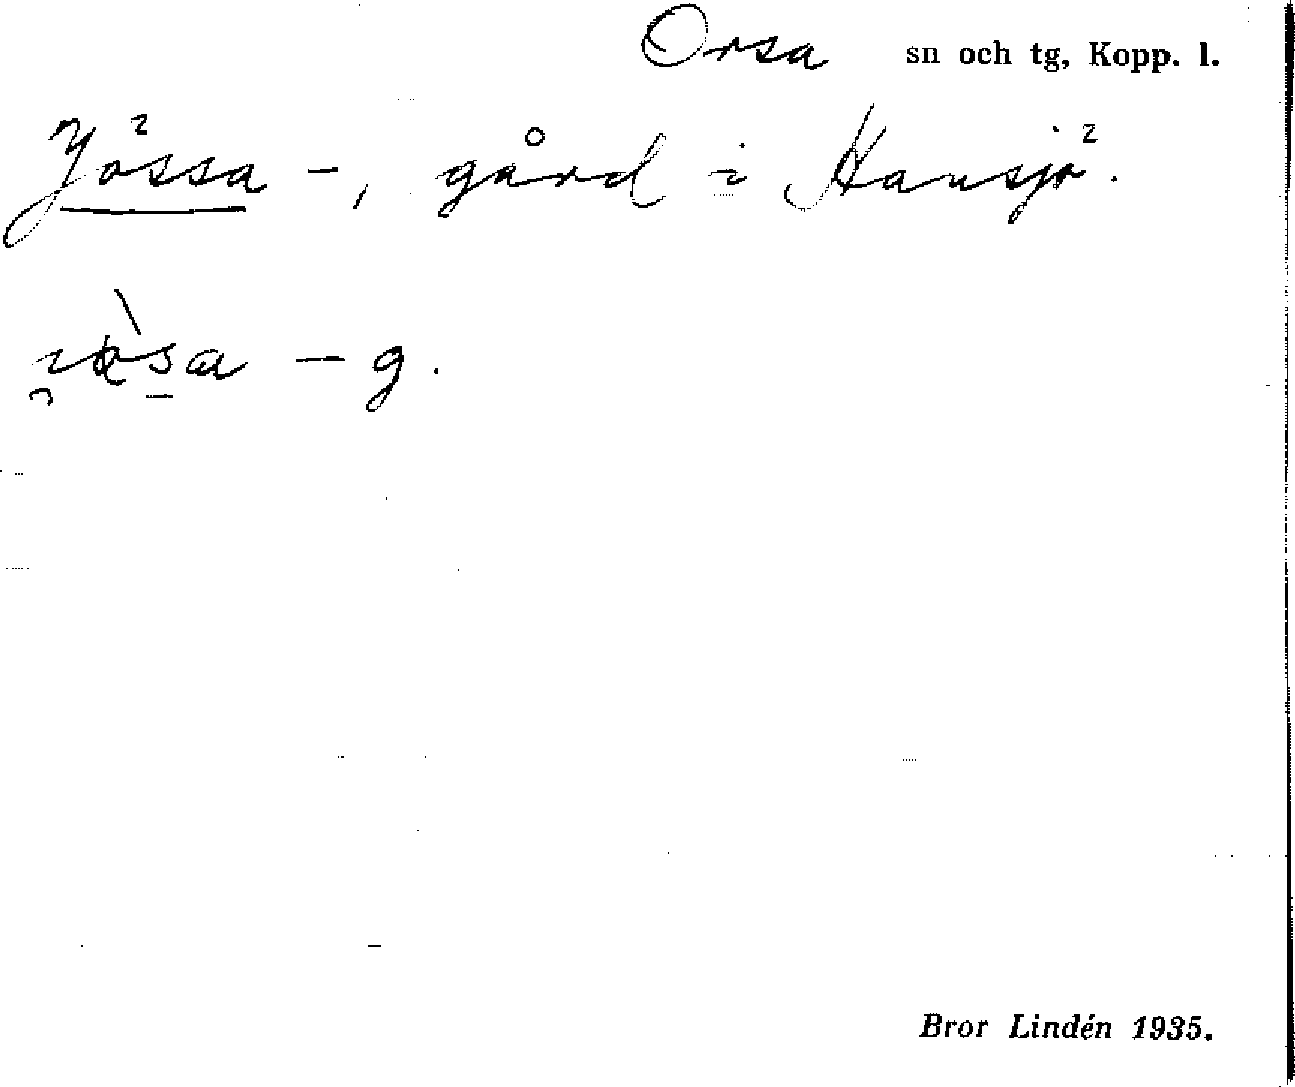 Orsa sn och tg, Kopp. l.
Jössa -, gård i Hansjö.
- g.
Bror Lindén 1935.